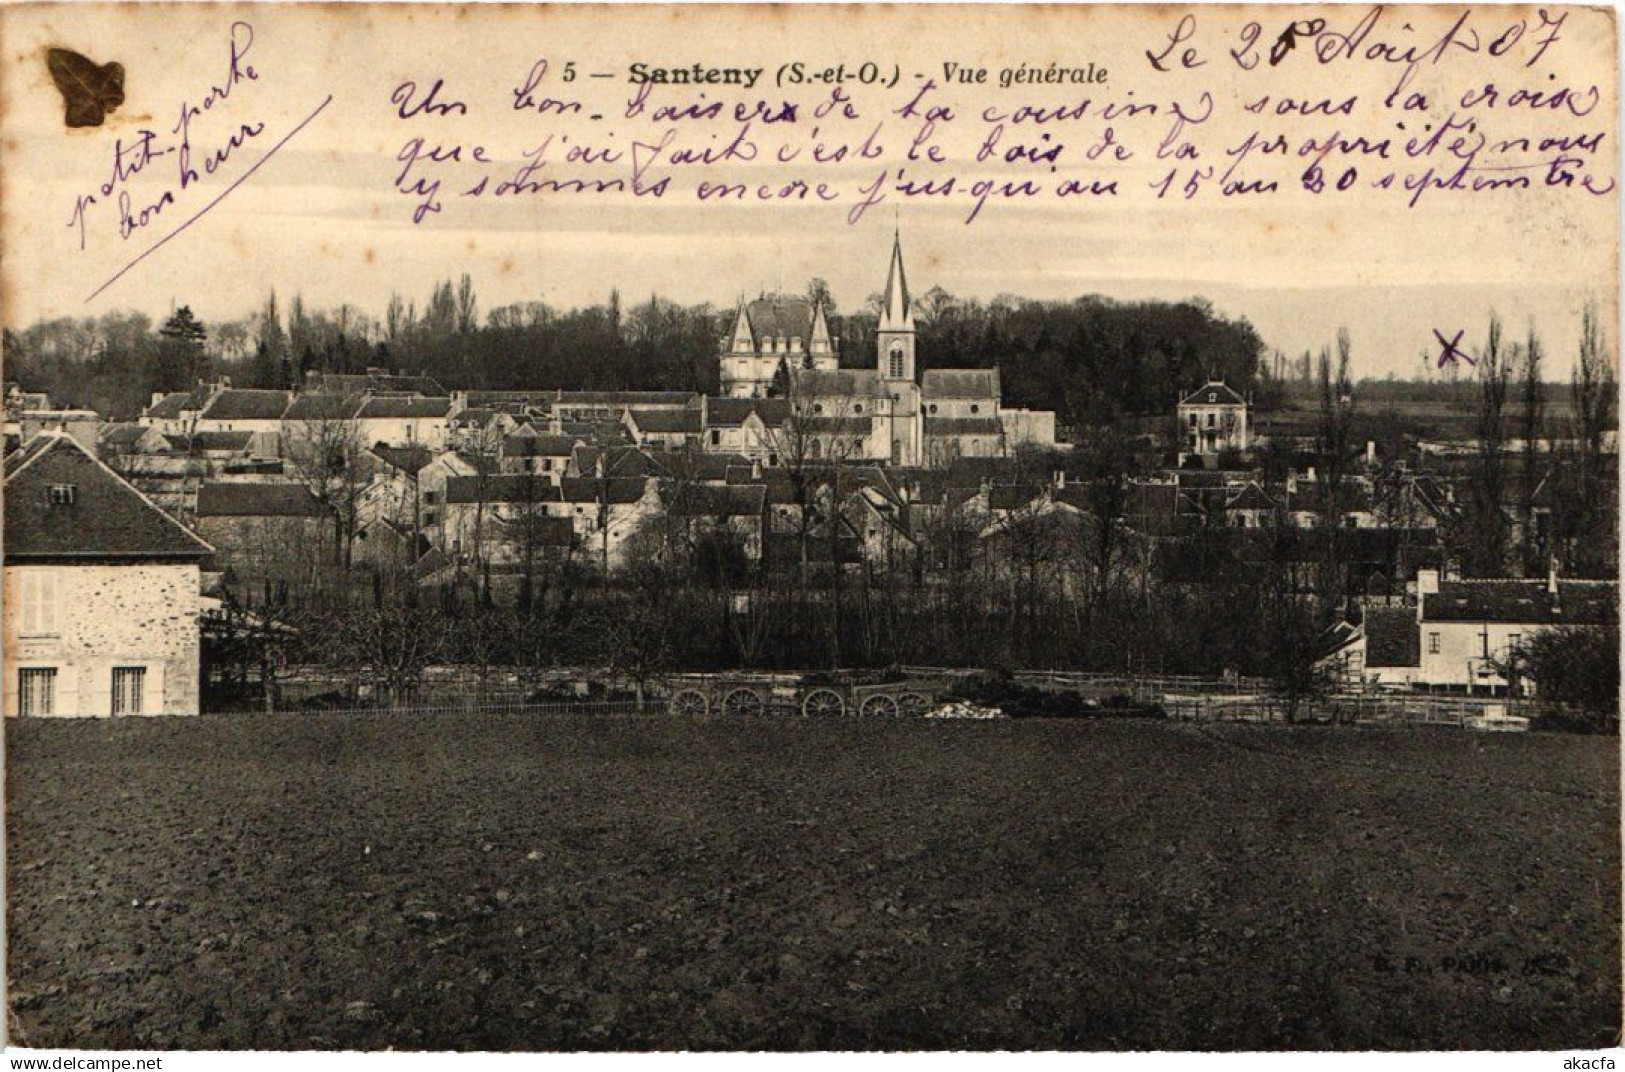 Le 25 Août 07
5 — Santeny (S.-et-O.) - Vue générale
petit-porte
bonheur
Un bon-baiser de ta cousine sous la croise
que j'ai fait c'est le bois de la propriété nous
y sommes encore j'us-qu'au 15 au 20 septembre
E. F., PARIS
akacfa